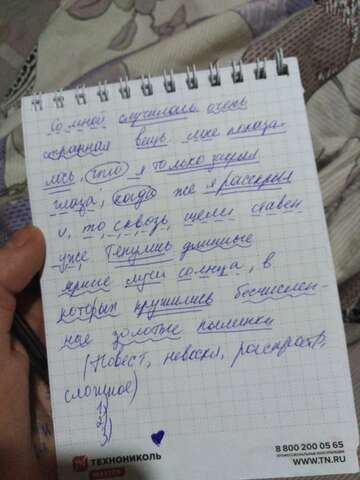 Со мной случилась очень
странная вещь мне показа-
лось, что я только закрыл
глаза, когда же я раскрыл
и, то сквозь щели ставен
уже тянулись длинные
яркие лучи солнца, в
которых кружились бесчислен-
ные золотые пылинки
(Повест, невоскл, распрост,
сложное)
1)
2)
3)
ТЕХНОНИКОЛЬ
МАСТЕР
8 800 200 05 65
ПРОФЕССИОНАЛЬНЫЕ КОНСУЛЬТАЦИИ
WWW.TN.RU